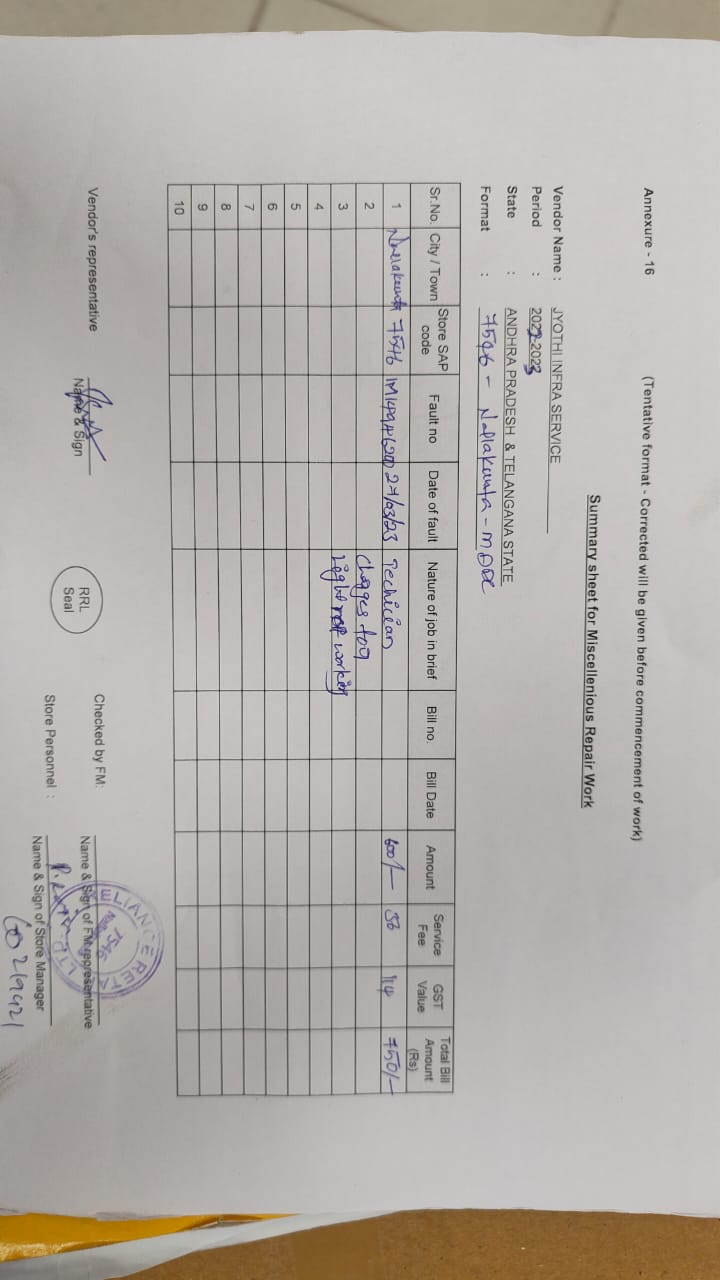 Annexure - 16 (Tentative format - Corrected will be given before commencement of work)
Summary sheet for Miscellenious Repair Work
Vendor Name : JYOTHI INFRA SERVICE
Period : 2022-2023
State : ANDHRA PRADESH & TELANGANA STATE
Format : 7546 - Nallakunta -
Sr.No. City / Town Store SAP code Fault no Date of fault Nature of job in brief Bill no. Bill Date Amount Service Fee GST Value Total Bill Amount (Rs)
1 Nallakunta 7546 27/03/23 Techician 600/- 36 114 750/-
2 Charges for
3 Light not working
4
5
6
7
8
9
10
Vendor's representative Name & Sign RRL Seal Checked by FM: Name & Sign of FM representative
Store Personnel : Name & Sign of Store Manager
RELIANCE RETAIL LTD 7546